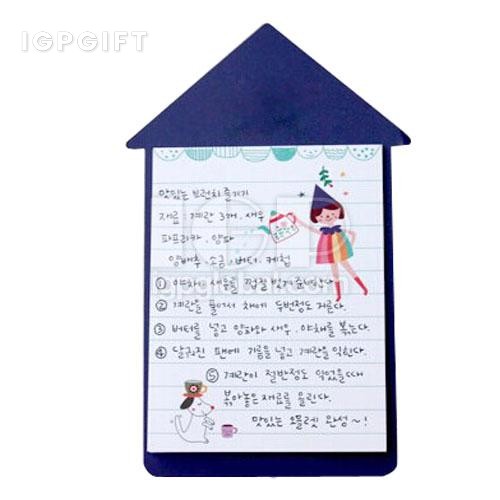 IGPGIFT
맛있는 브런치 즐기기
재료 : 계란 3개. 새우
파프리카. 양파
양배추. 소금. 버터. 케첩
① 야채, 새우를 껍질 벗겨 준비한다.
② 계란을 풀어서 체에 두번정도 거른다.
③ 버터를 넣고 양파와 새우. 야채를 볶는다.
④ 달궈진 팬에 기름을 넣고 계란을 익힌다.
⑤ 계란이 절반정도 익었을때
볶아놓은 재료를 올린다.
맛있는 오믈렛 완성~!